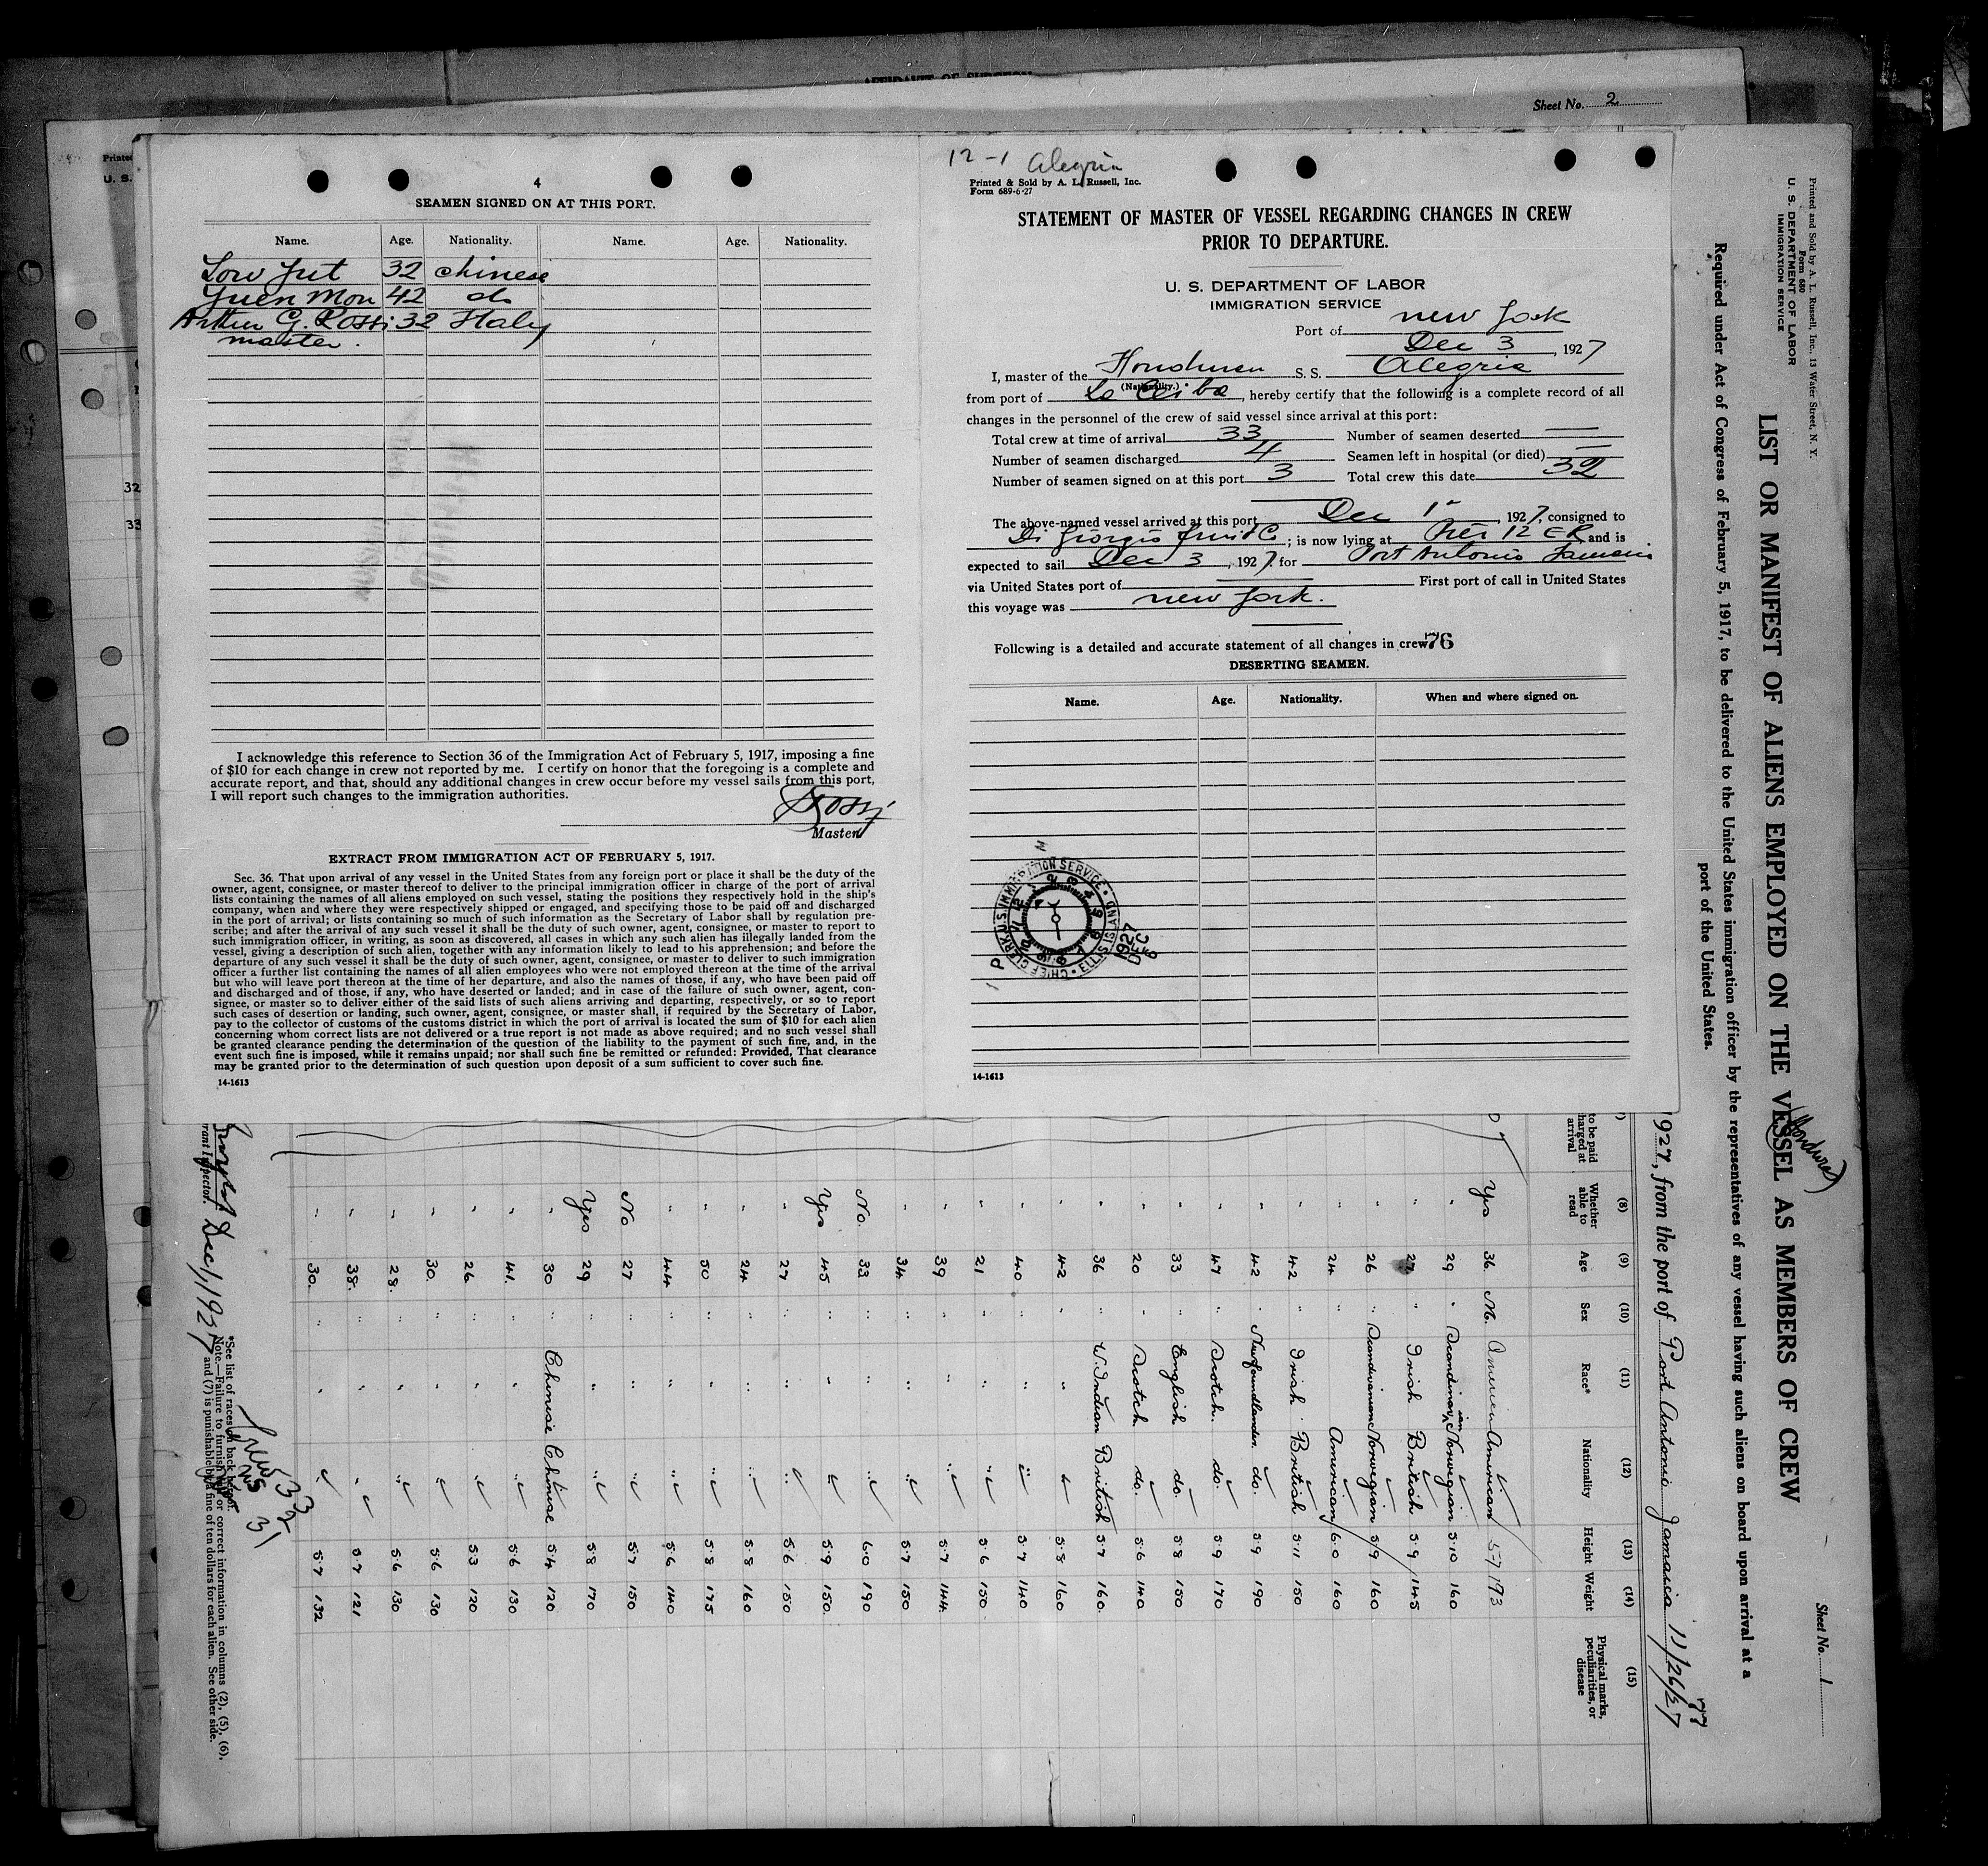 Sheet No. 2
Printed
U. S.
32
33
4
SEAMEN SIGNED ON AT THIS PORT.
Name. Age. Nationality. Name. Age. Nationality.
Low Jut 32 Chinese
Yuen Mon 42 do
Arthur G. Rossi 32 Italy
master.
I acknowledge this reference to Section 36 of the Immigration Act of February 5, 1917, imposing a fine
of $10 for each change in crew not reported by me. I certify on honor that the foregoing is a complete and
accurate report, and that, should any additional changes in crew occur before my vessel sails from this port,
I will report such changes to the immigration authorities.
Rossi
Master
EXTRACT FROM IMMIGRATION ACT OF FEBRUARY 5, 1917.
Sec. 36. That upon arrival of any vessel in the United States from any foreign port or place it shall be the duty of the
owner, agent, consignee, or master thereof to deliver to the principal immigration officer in charge of the port of arrival
lists containing the names of all aliens employed on such vessel, stating the positions they respectively hold in the ship's
company, when and where they were respectively shipped or engaged, and specifying those to be paid off and discharged
in the port of arrival; or lists containing so much of such information as the Secretary of Labor shall by regulation pre-
scribe; and after the arrival of any such vessel it shall be the duty of such owner, agent, consignee, or master to report to
such immigration officer, in writing, as soon as discovered, all cases in which any such alien has illegally landed from the
vessel, giving a description of such alien, together with any information likely to lead to his apprehension; and before the
departure of any such vessel it shall be the duty of such owner, agent, consignee, or master to deliver to such immigration
officer a further list containing the names of all alien employees who were not employed thereon at the time of the arrival
but who will leave port thereon at the time of her departure, and also the names of those, if any, who have been paid off
and discharged and of those, if any, who have deserted or landed; and in case of the failure of such owner, agent, con-
signee, or master so to deliver either of the said lists of such aliens arriving and departing, respectively, or so to report
such cases of desertion or landing, such owner, agent, consignee, or master shall, if required by the Secretary of Labor,
pay to the collector of customs of the customs district in which the port of arrival is located the sum of $10 for each alien
concerning whom correct lists are not delivered or a true report is not made as above required; and no such vessel shall
be granted clearance pending the determination of the question of the liability to the payment of such fine, and, in the
event such fine is imposed, while it remains unpaid; nor shall such fine be remitted or refunded: Provided, That clearance
may be granted prior to the determination of such question upon deposit of a sum sufficient to cover such fine.
14-1613
12-1 Alegria
Printed & Sold by A. L. Russell, Inc.
Form 689-6-27
STATEMENT OF MASTER OF VESSEL REGARDING CHANGES IN CREW
PRIOR TO DEPARTURE.
U. S. DEPARTMENT OF LABOR
IMMIGRATION SERVICE
Port of New York
Dec 3, 1927
I, master of the Honduran S. S. Alegria
(Nationality.)
from port of La Ceiba, hereby certify that the following is a complete record of all
changes in the personnel of the crew of said vessel since arrival at this port:
Total crew at time of arrival 33 Number of seamen deserted
Number of seamen discharged 4 Seamen left in hospital (or died)
Number of seamen signed on at this port 3 Total crew this date 32
The above-named vessel arrived at this port Dec 1, 1927, consigned to
Di Giorgio Fruit Co; is now lying at Pier 12 ER and is
expected to sail Dec 3, 1927 for Port Antonio Jamaica
via United States port of First port of call in United States
this voyage was New York.
Following is a detailed and accurate statement of all changes in crew 76
DESERTING SEAMEN.
Name. Age. Nationality. When and where signed on.
CHIEF CLERK U.S. IMMIGRATION SERVICE · ELLIS ISLAND
1927
DEC
6
P
14-1613
Printed and Sold by A. L. Russell, Inc., 13 Water Street, N. Y.
Form 680
U. S. DEPARTMENT OF LABOR
IMMIGRATION SERVICE
Sheet No. 1
LIST OR MANIFEST OF ALIENS EMPLOYED ON THE VESSEL AS MEMBERS OF CREW
(Honduras)
Required under Act of Congress of February 5, 1917, to be delivered to the United States immigration officer by the representatives of any vessel having such aliens on board upon arrival at a
port of the United States.
1927, from the port of Port Antonio Jamaica 11/26/27
77
(8) (9) (10) (11) (12) (13) (14) (15)
to be paid
arrival
Whether able to read Age Sex Race* Nationality Height Weight Physical marks, peculiarities, or disease
Yes 36. M. American American 5-7 193
" 29 " Scandinavian Norwegian 5.10 160
" 27 " Irish British 5.9 145
" 26 " Scandinavian Norwegian 5.9 160
" 24 " American 6.0 160
" 42 " Irish British 5.11 150
" 42 " Newfoundlander do. 5.9 190
" 47 " Scotch do. 5.9 170
" 33 " English do. 5.8 150
" 20 " Scotch do. 5.6 140
" 36 " W. Indian British 5.7 160.
" 42 " " " 5.8 160
" 40 " " " 5.7 140
" 21 " " " 5.6 150
" 39 " " " 5.7 144
" 34 " " " 5.7 150
No. 33 " " " 6.0 190
Yes 45 " " " 5.9 150.
" 27 " " " 5.6 150
" 24 " " " 5.8 160
" 50 " " " 5.8 175
" 44 " " " 5.6 140
No 27 " " " 5.7 150
Yes 29 " " " 5.8 170
" 30 " Chinese Chinese 5.4 120
" 41. " " " 5.6 130
" 26. " " " 5.3 120
" 30. " " " 5.6 130
" 28. " " " 5.6 130
" 38. " " " 5.7 121
" 30. " " " 5.7 132
*See list of races on back hereof.
Note.—Failure to furnish full or correct information in columns (2), (5), (6),
and (7) is punishable by a fine of ten dollars for each alien. See other side.
Inspector. Dec 1, 1927
Crew 33
31